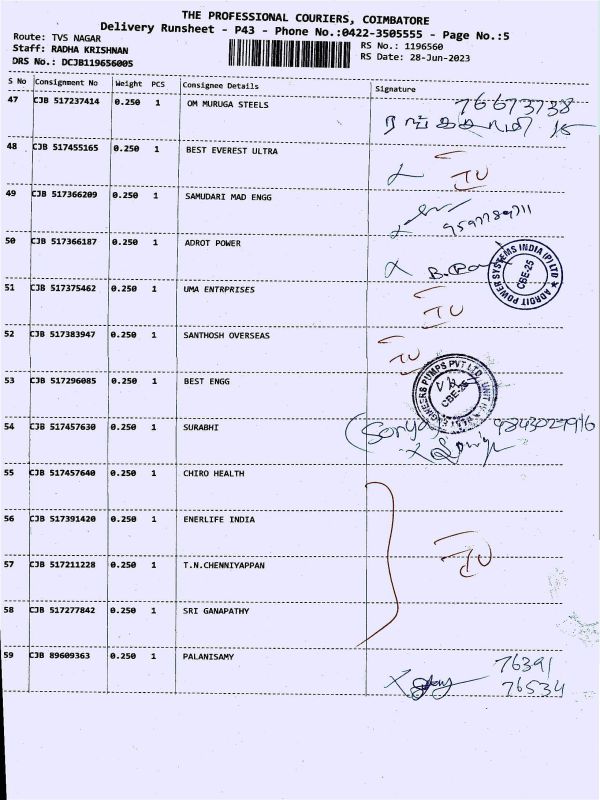 THE PROFESSIONAL COURIERS, COIMBATORE
Delivery Runsheet - P43 - Phone No.:0422-3505555 - Page No.:5
Route: TVS NAGAR
RS No.: 1196560
Staff: RADHA KRISHNAN
RS Date: 28-Jun-2023
DRS No.: DCJB119656005
S No Consignment No Weight PCS Consignee Details Signature
47 CJB 517237414 0.250 1 OM MURUGA STEELS
48 CJB 517455165 0.250 1 BEST EVEREST ULTRA
49 CJB 517366209 0.250 1 SAMUDARI MAD ENGG
50 CJB 517366187 0.250 1 ADROT POWER
ADROIT POWER SYSTEMS INDIA (P) LTD ★ CBE-25
51 CJB 517375462 0.250 1 UMA ENTRPRISES
52 CJB 517383947 0.250 1 SANTHOSH OVERSEAS
53 CJB 517296085 0.250 1 BEST ENGG
54 CJB 517457630 0.250 1 SURABHI
55 CJB 517457640 0.250 1 CHIRO HEALTH
56 CJB 517391420 0.250 1 ENERLIFE INDIA
57 CJB 517211228 0.250 1 T.N.CHENNIYAPPAN
58 CJB 517277842 0.250 1 SRI GANAPATHY
59 CJB 89609363 0.250 1 PALANISAMY
76391
76534